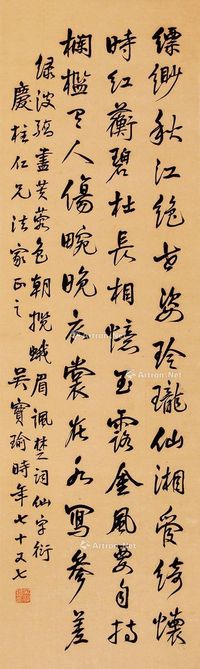 缥缈秋江绝世姿玲珑仙湘爱绮怀
时红蘅碧杜长相忆玉露金风要自持
栏槛天人伤畹晚衣裳在水写参差
绿波孤画芙蓉色朝揽蛾眉讽楚词仙字衍
庆柱仁兄法家正之 吴宝瑜时年七十又七